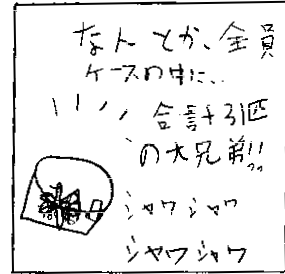 なんとか、全員
ケースの中に、、
合計31匹
の大兄弟!!
シャワシャワ
シャワシャワ